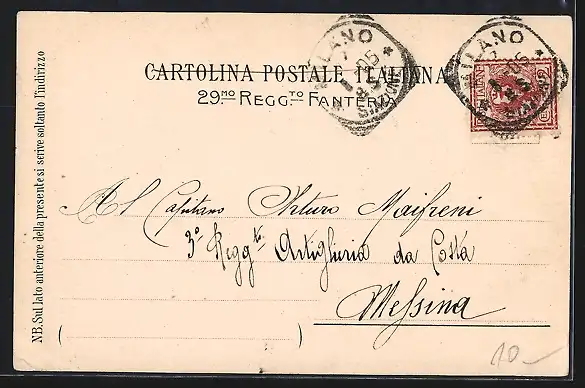 CARTOLINA POSTALE ITALIANA
29.MO REGG.TO FANTERIA
MILANO
7
05
MILANO
7
05
N.B. Sul lato anteriore della presente si scrive soltanto l'indirizzo
Al Capitano Arturo Maifreni
3° Reggto Artiglieria da Costa
Messina
10-